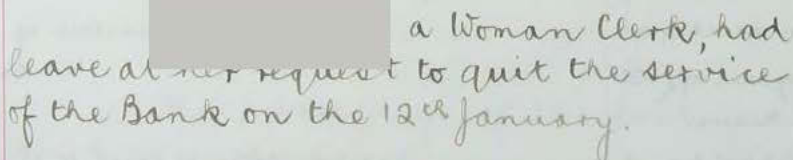 a Woman Clerk, had
leave at her request to quit the service
of the Bank on the 12th January.